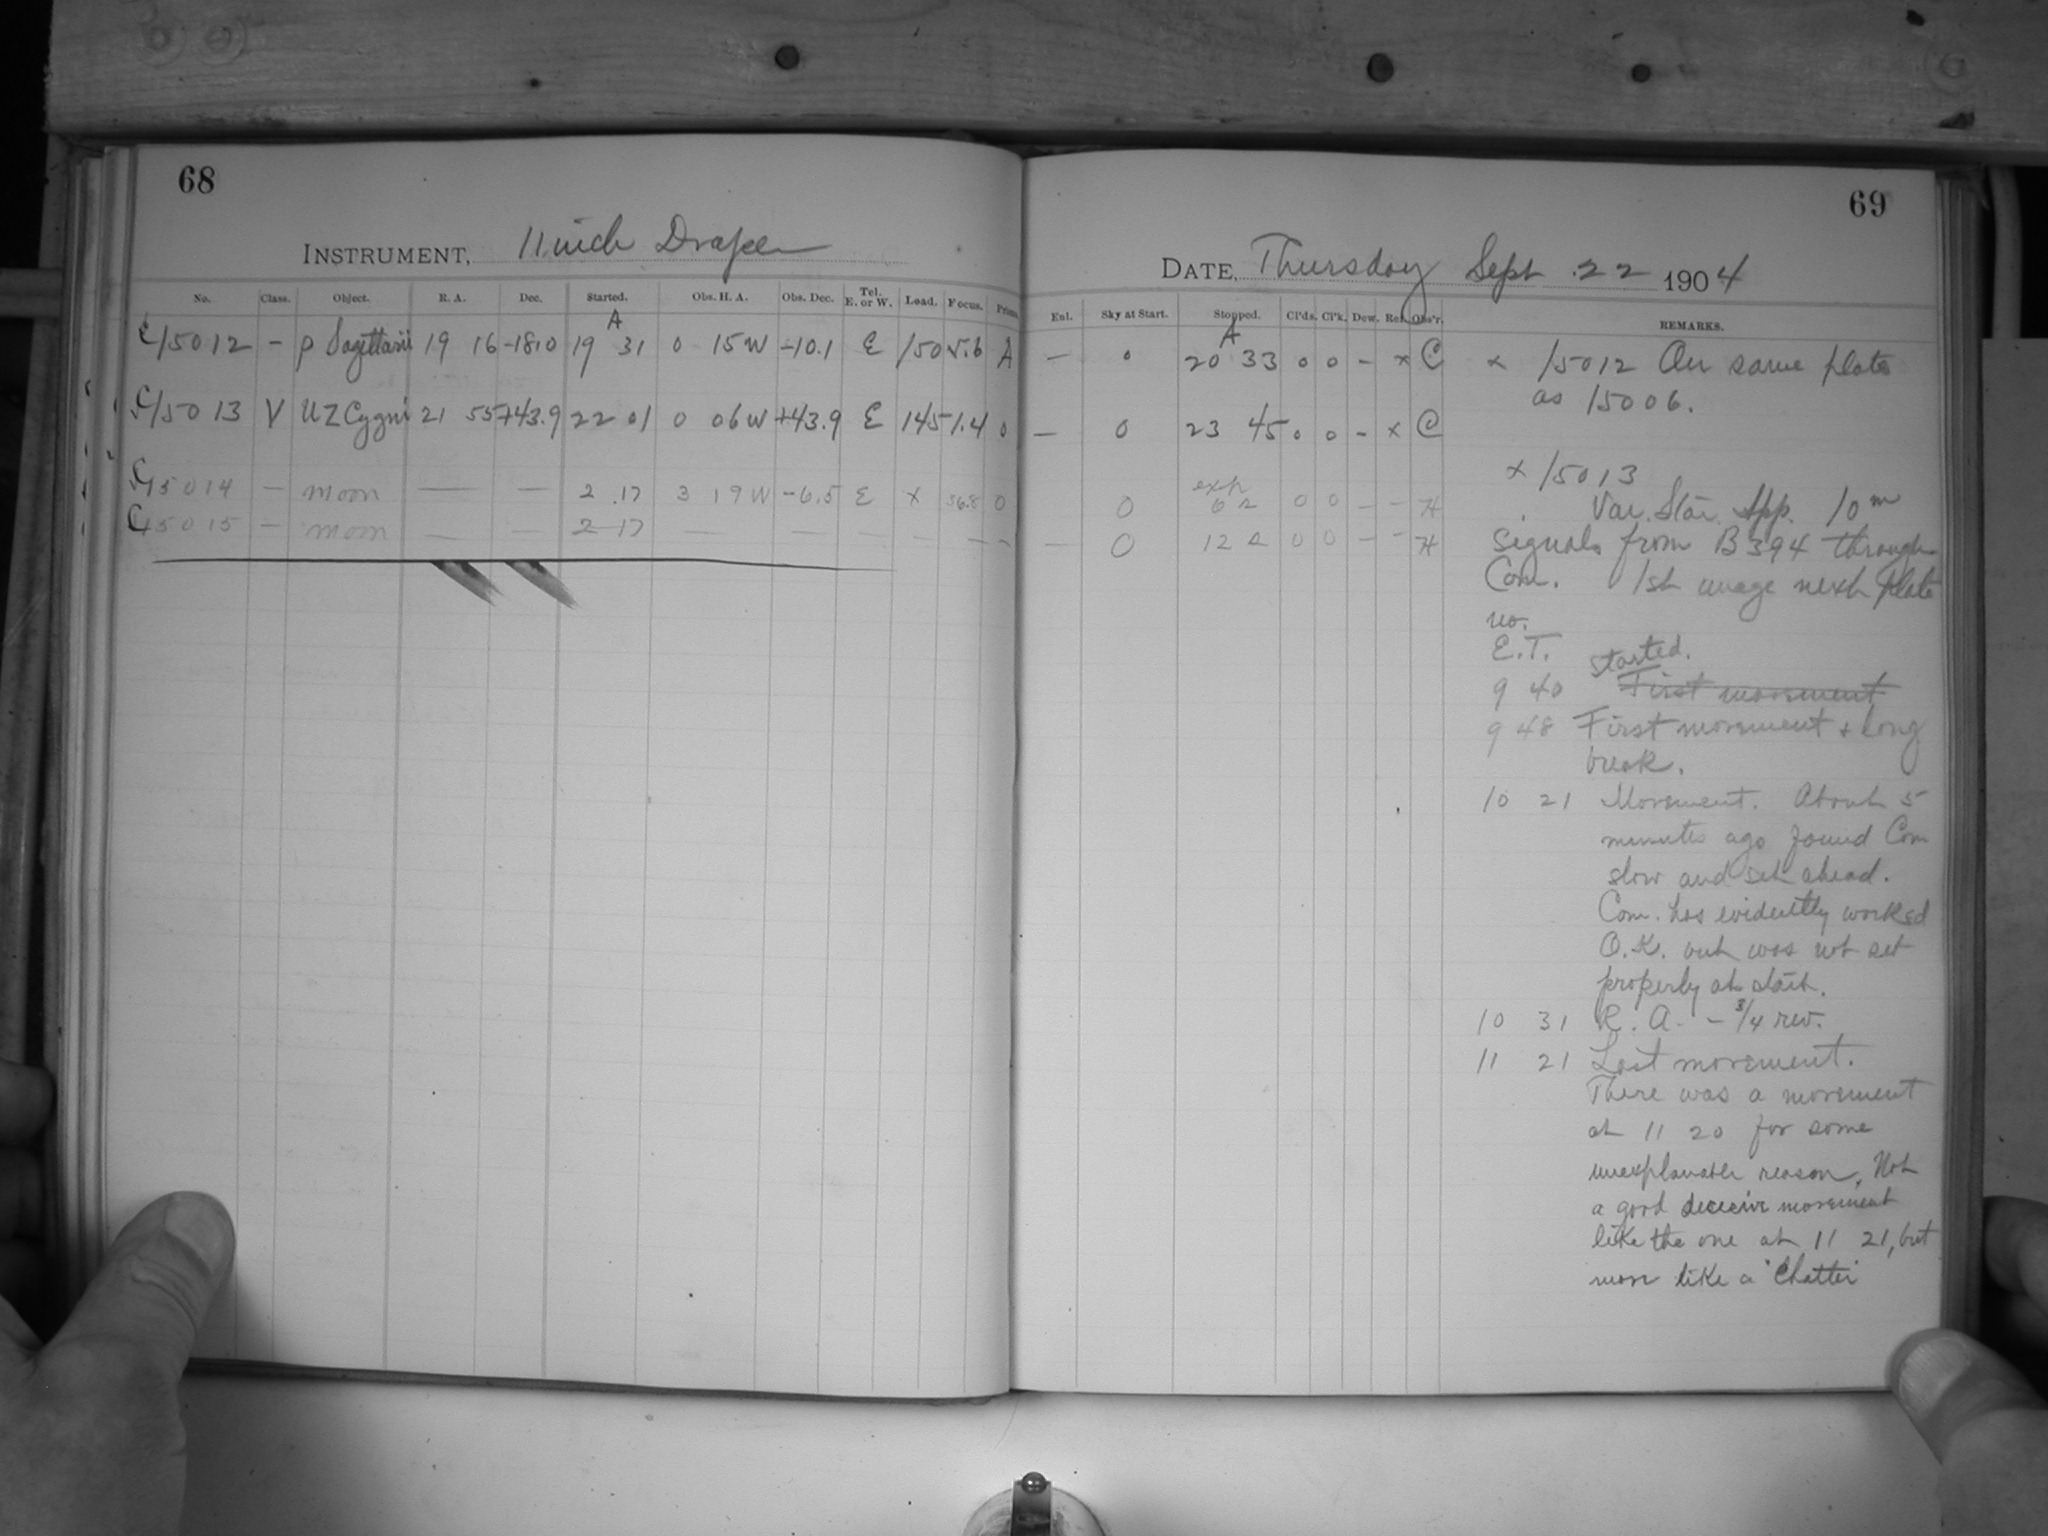 68
INSTRUMENT, 11 inch Draper
No. Class. Object. R. A. Dec. Started. Obs. H. A. Obs. Dec. Tel. E. or W. Load. Focus. Prism
A
C15012 - ρ Sagittarii 19 16 -18.0 19 31 0 15 W -10.1 E 150 5.6 A
C15013 V UZ Cygni 21 55 +43.9 22 01 0 06 W +43.9 E 145 1.4 0
C15014 — moon — — 2 17 3 19 W -6.5 E x 56.8 0
C15015 — moon — — 2 17 — — — — — —
69
DATE, Thursday Sept. 22 1904
Enl. Sky at Start. Stopped. Cl'ds. Cl'k. Dew. Rem. Obs'r. REMARKS.
A
— 0 20 33 0 0 - x C
— 0 23 45 0 0 - x C
exp
0 6 2 0 0 — - H
— 0 12 2 0 0 — - H
x 15012 On same plate
as 15006.
x 15013
Var. Star. App. 10m
signals from B394 through
Com. 1st image next plate
no.
E.T.
started.
9 40 First movement
9 48 First movement & long
break.
10 21 Movement. About 5
minutes ago found Com
slow and set ahead.
Com. has evidently worked
O.K. but was not set
properly at start.
10 31 R. A. - 3/4 rev.
11 21 Last movement.
There was a movement
at 11 20 for some
reason. Not
a good movement
like the one at 11 21, but
more like a "Chatter"